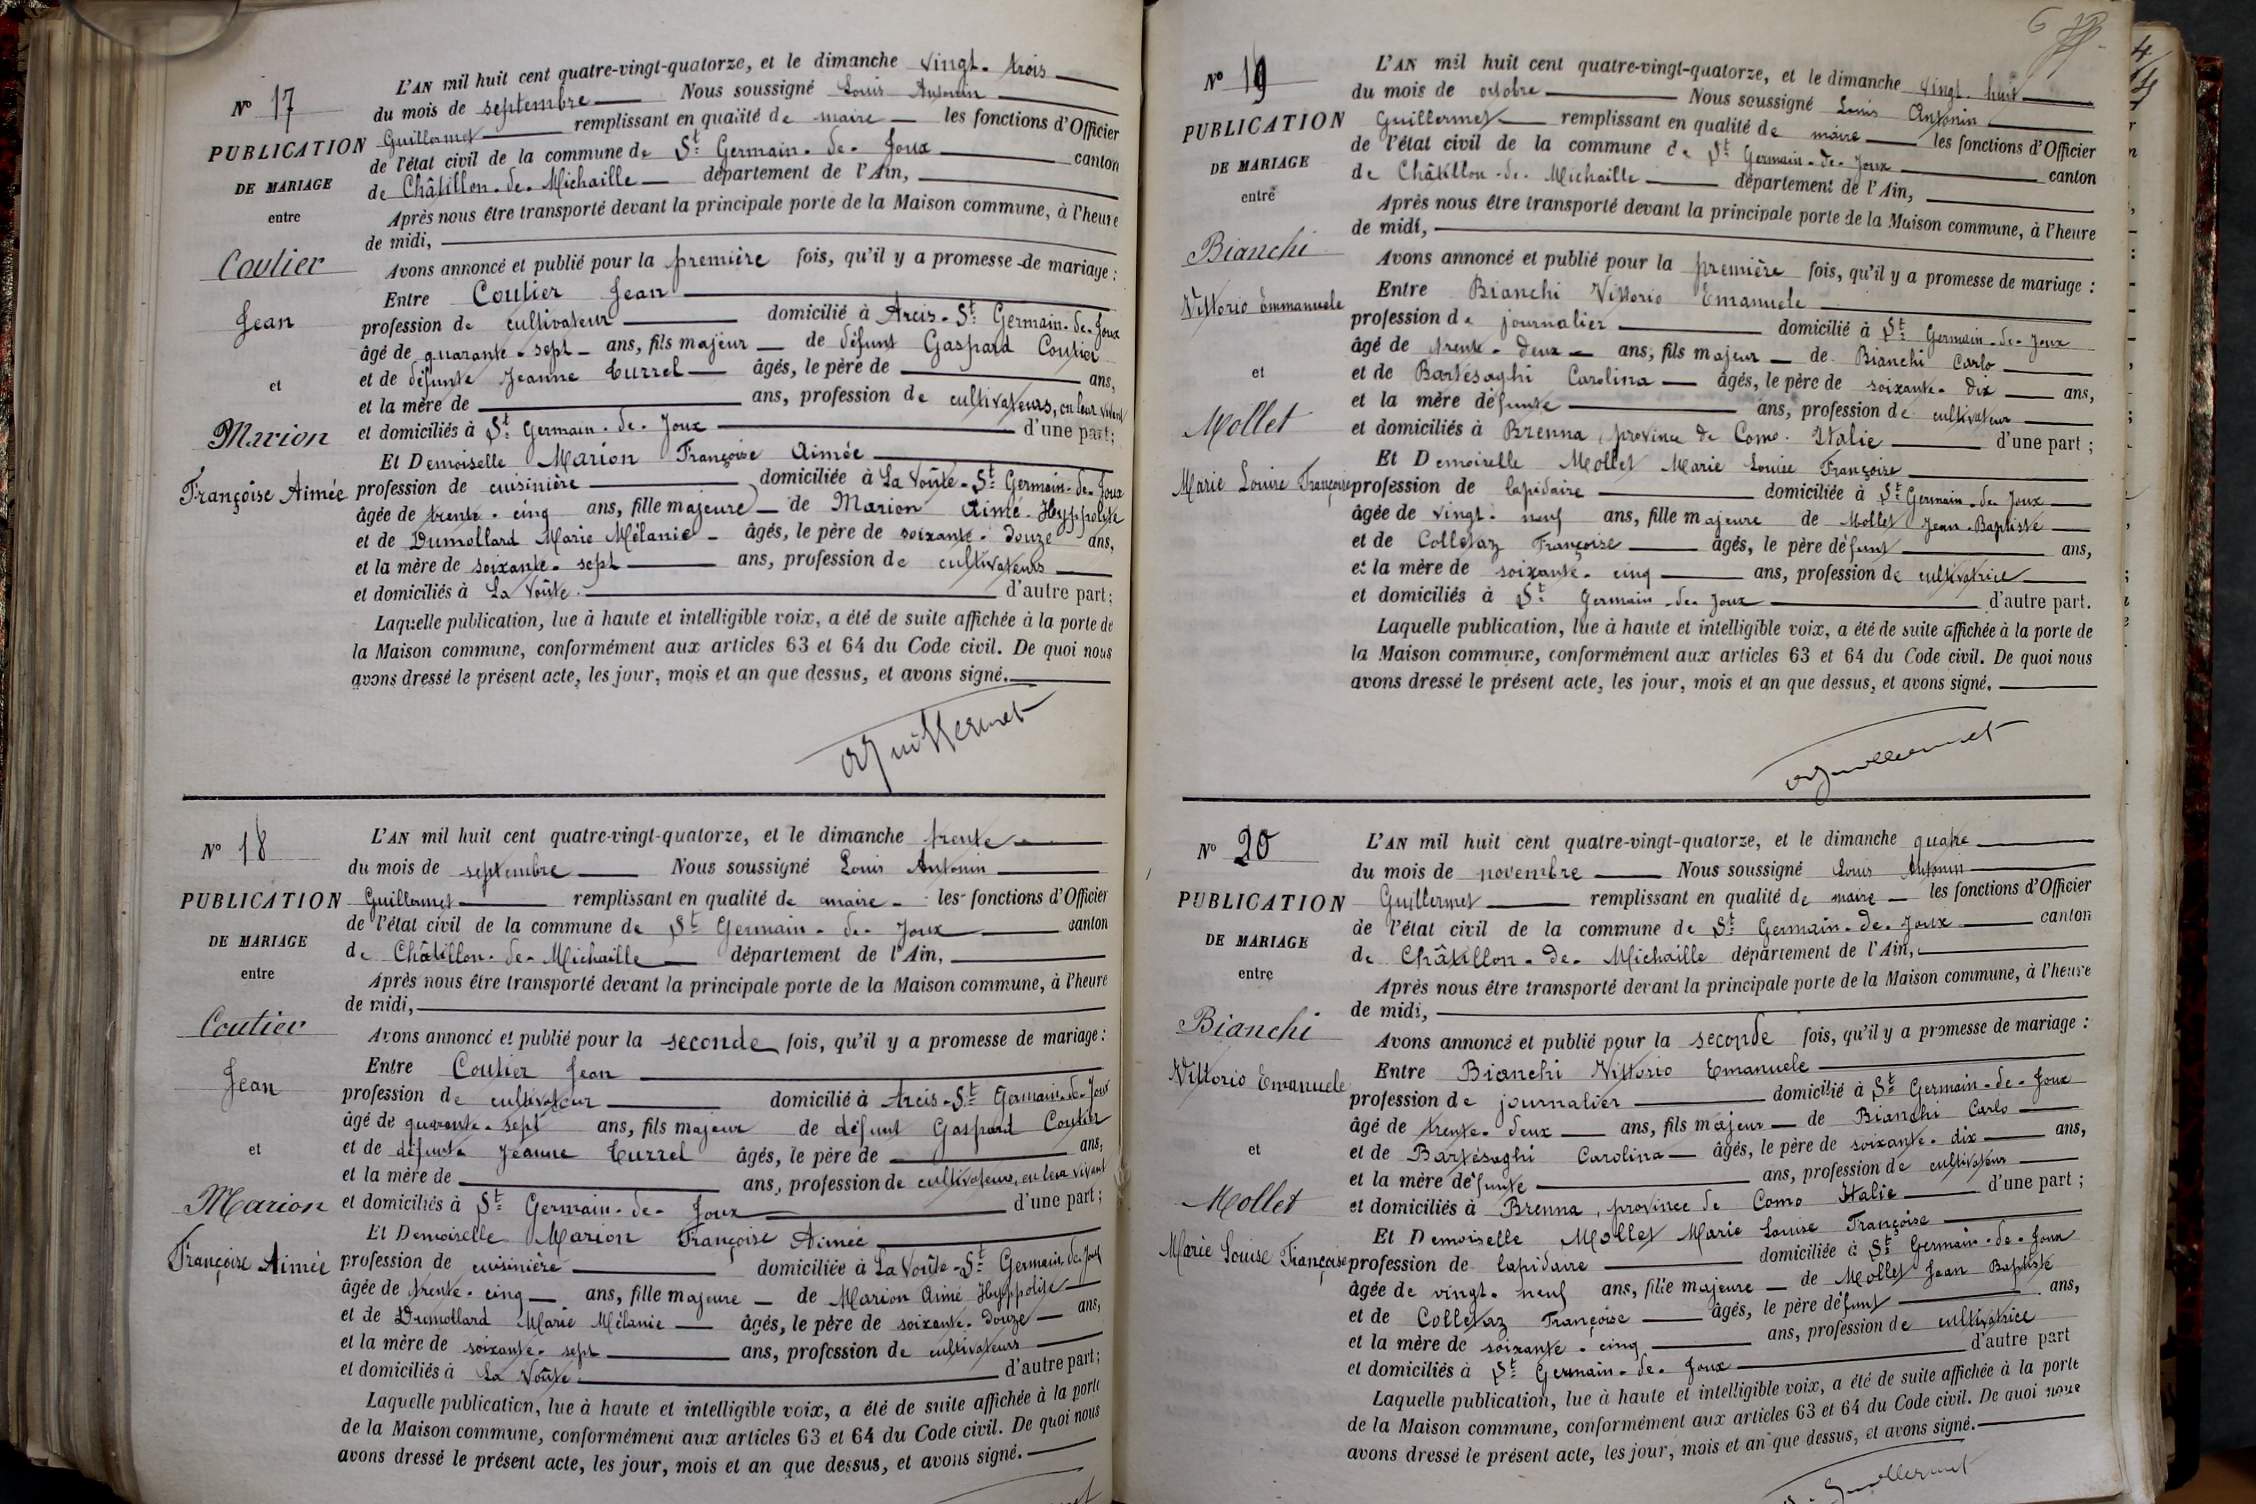 N° 17
PUBLICATION
DE MARIAGE
entre
Coutier
Jean
et
Marion
Françoise Aimée
L'AN mil huit cent quatre-vingt-quatorze, et le dimanche vingt-trois
du mois de septembre Nous soussigné Louis Antonin
Guillermet remplissant en qualité de maire les fonctions d'Officier
de l'état civil de la commune de St Germain-de-Joux canton
de Châtillon-de-Michaille département de l'Ain,
Après nous être transporté devant la principale porte de la Maison commune, à l'heure
de midi,
Avons annoncé et publié pour la première fois, qu'il y a promesse de mariage :
Entre Coutier Jean
profession de cultivateur domicilié à Arcis-St Germain-de-Joux
âgé de quarante-sept ans, fils majeur de défunt Gaspard Coutier
et de défunte Jeanne Curzel âgés, le père de ans,
et la mère de ans, profession de cultivateurs, en leur vivant
et domiciliés à St Germain-de-Joux d'une part;
Et Demoiselle Marion Françoise Aimée
profession de cuisinière domiciliée à La Voûte-St Germain-de-Joux
âgée de trente-cinq ans, fille majeure de Marion Aimé Hyppolite
et de Dumollard Marie Mélanie âgés, le père de soixante-douze ans,
et la mère de soixante-sept ans, profession de cultivateurs
et domiciliés à La Voûte d'autre part;
Laquelle publication, lue à haute et intelligible voix, a été de suite affichée à la porte de
la Maison commune, conformément aux articles 63 et 64 du Code civil. De quoi nous
avons dressé le présent acte, les jour, mois et an que dessus, et avons signé.
Guillermet
N° 18
PUBLICATION
DE MARIAGE
entre
Coutier
Jean
et
Marion
Françoise Aimée
L'AN mil huit cent quatre-vingt-quatorze, et le dimanche trente
du mois de septembre Nous soussigné Louis Antonin
Guillermet remplissant en qualité de maire les fonctions d'Officier
de l'état civil de la commune de St Germain-de-Joux canton
de Châtillon-de-Michaille département de l'Ain,
Après nous être transporté devant la principale porte de la Maison commune, à l'heure
de midi,
Avons annoncé et publié pour la seconde fois, qu'il y a promesse de mariage :
Entre Coutier Jean
profession de cultivateur domicilié à Arcis-St Germain-de-Joux
âgé de quarante-sept ans, fils majeur de défunt Gaspard Coutier
et de défunte Jeanne Curzel âgés, le père de ans,
et la mère de ans, profession de cultivateurs, en leur vivant
et domiciliés à St Germain-de-Joux d'une part;
Et Demoiselle Marion Françoise Aimée
profession de cuisinière domiciliée à La Voûte-St Germain-de-Joux
âgée de trente-cinq ans, fille majeure de Marion Aimé Hyppolite
et de Dumollard Marie Mélanie âgés, le père de soixante-douze ans,
et la mère de soixante-sept ans, profession de cultivateurs
et domiciliés à La Voûte d'autre part;
Laquelle publication, lue à haute et intelligible voix, a été de suite affichée à la porte
de la Maison commune, conformément aux articles 63 et 64 du Code civil. De quoi nous
avons dressé le présent acte, les jour, mois et an que dessus, et avons signé.
6
N° 19
PUBLICATION
DE MARIAGE
entre
Bianchi
Vittorio Emmanuele
et
Mollet
Marie Louise Françoise
L'AN mil huit cent quatre-vingt-quatorze, et le dimanche vingt-huit
du mois de octobre Nous soussigné Louis Antonin
Guillermet remplissant en qualité de maire les fonctions d'Officier
de l'état civil de la commune de St Germain-de-Joux canton
de Châtillon-de-Michaille département de l'Ain,
Après nous être transporté devant la principale porte de la Maison commune, à l'heure
de midi,
Avons annoncé et publié pour la première fois, qu'il y a promesse de mariage :
Entre Bianchi Vittorio Emanuele
profession de journalier domicilié à St Germain-de-Joux
âgé de trente-deux ans, fils majeur de Bianchi Carlo
et de Bartésaghi Carolina âgés, le père de soixante-dix ans,
et la mère défunte ans, profession de cultivateur
et domiciliés à Brenna, province de Como. Italie d'une part;
Et Demoiselle Mollet Marie Louise Françoise
profession de lapidaire domiciliée à St Germain-de-Joux
âgée de vingt-neuf ans, fille majeure de Mollet Jean-Baptiste
et de Colletaz Françoise âgés, le père défunt ans,
et la mère de soixante-cinq ans, profession de cultivatrice
et domiciliés à St Germain-de-Joux d'autre part.
Laquelle publication, lue à haute et intelligible voix, a été de suite affichée à la porte de
la Maison commune, conformément aux articles 63 et 64 du Code civil. De quoi nous
avons dressé le présent acte, les jour, mois et an que dessus, et avons signé.
Guillermet
N° 20
PUBLICATION
DE MARIAGE
entre
Bianchi
Vittorio Emanuele
et
Mollet
Marie Louise Françoise
L'AN mil huit cent quatre-vingt-quatorze, et le dimanche quatre
du mois de novembre Nous soussigné Louis Antonin
Guillermet remplissant en qualité de maire les fonctions d'Officier
de l'état civil de la commune de St Germain-de-Joux canton
de Châtillon-de-Michaille département de l'Ain,
Après nous être transporté devant la principale porte de la Maison commune, à l'heure
de midi,
Avons annoncé et publié pour la seconde fois, qu'il y a promesse de mariage :
Entre Bianchi Vittorio Emanuele
profession de journalier domicilié à St Germain-de-Joux
âgé de trente-deux ans, fils majeur de Bianchi Carlo
et de Bartésaghi Carolina âgés, le père de soixante-dix ans,
et la mère défunte ans, profession de cultivateur
et domiciliés à Brenna, province de Como Italie d'une part;
Et Demoiselle Mollet Marie Louise Françoise
profession de lapidaire domiciliée à St Germain-de-Joux
âgée de vingt-neuf ans, fille majeure de Mollet Jean Baptiste
et de Colletaz Françoise âgés, le père défunt ans,
et la mère de soixante-cinq ans, profession de cultivatrice
et domiciliés à St Germain-de-Joux d'autre part
Laquelle publication, lue à haute et intelligible voix, a été de suite affichée à la porte
de la Maison commune, conformément aux articles 63 et 64 du Code civil. De quoi nous
avons dressé le présent acte, les jour, mois et an que dessus, et avons signé.
Guillermet